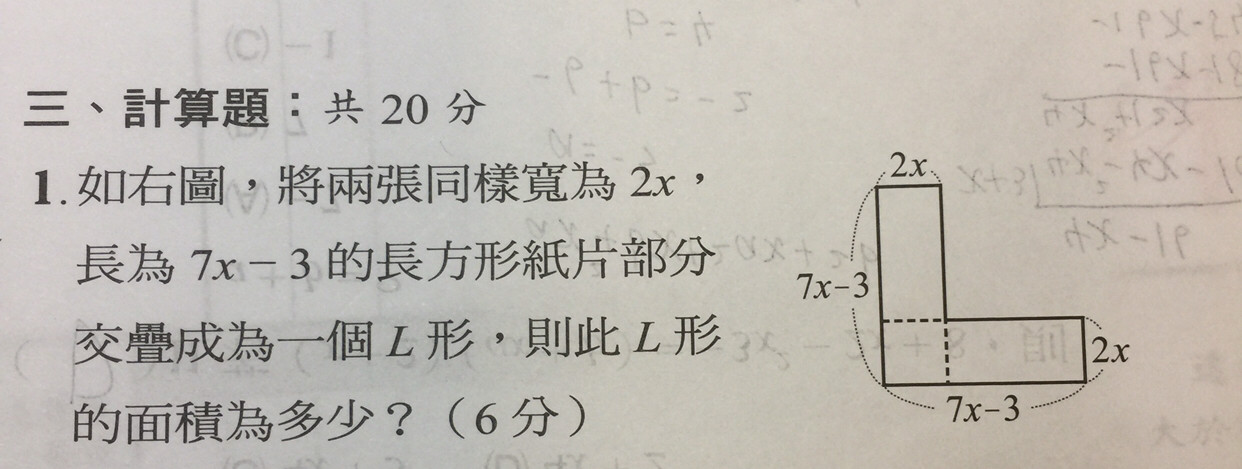 三、計算題：共 20 分
1. 如右圖，將兩張同樣寬為 2x，
長為 7x－3 的長方形紙片部分
交疊成為一個 L 形，則此 L 形
的面積為多少？（6 分）
2x
7x−3
2x
7x−3